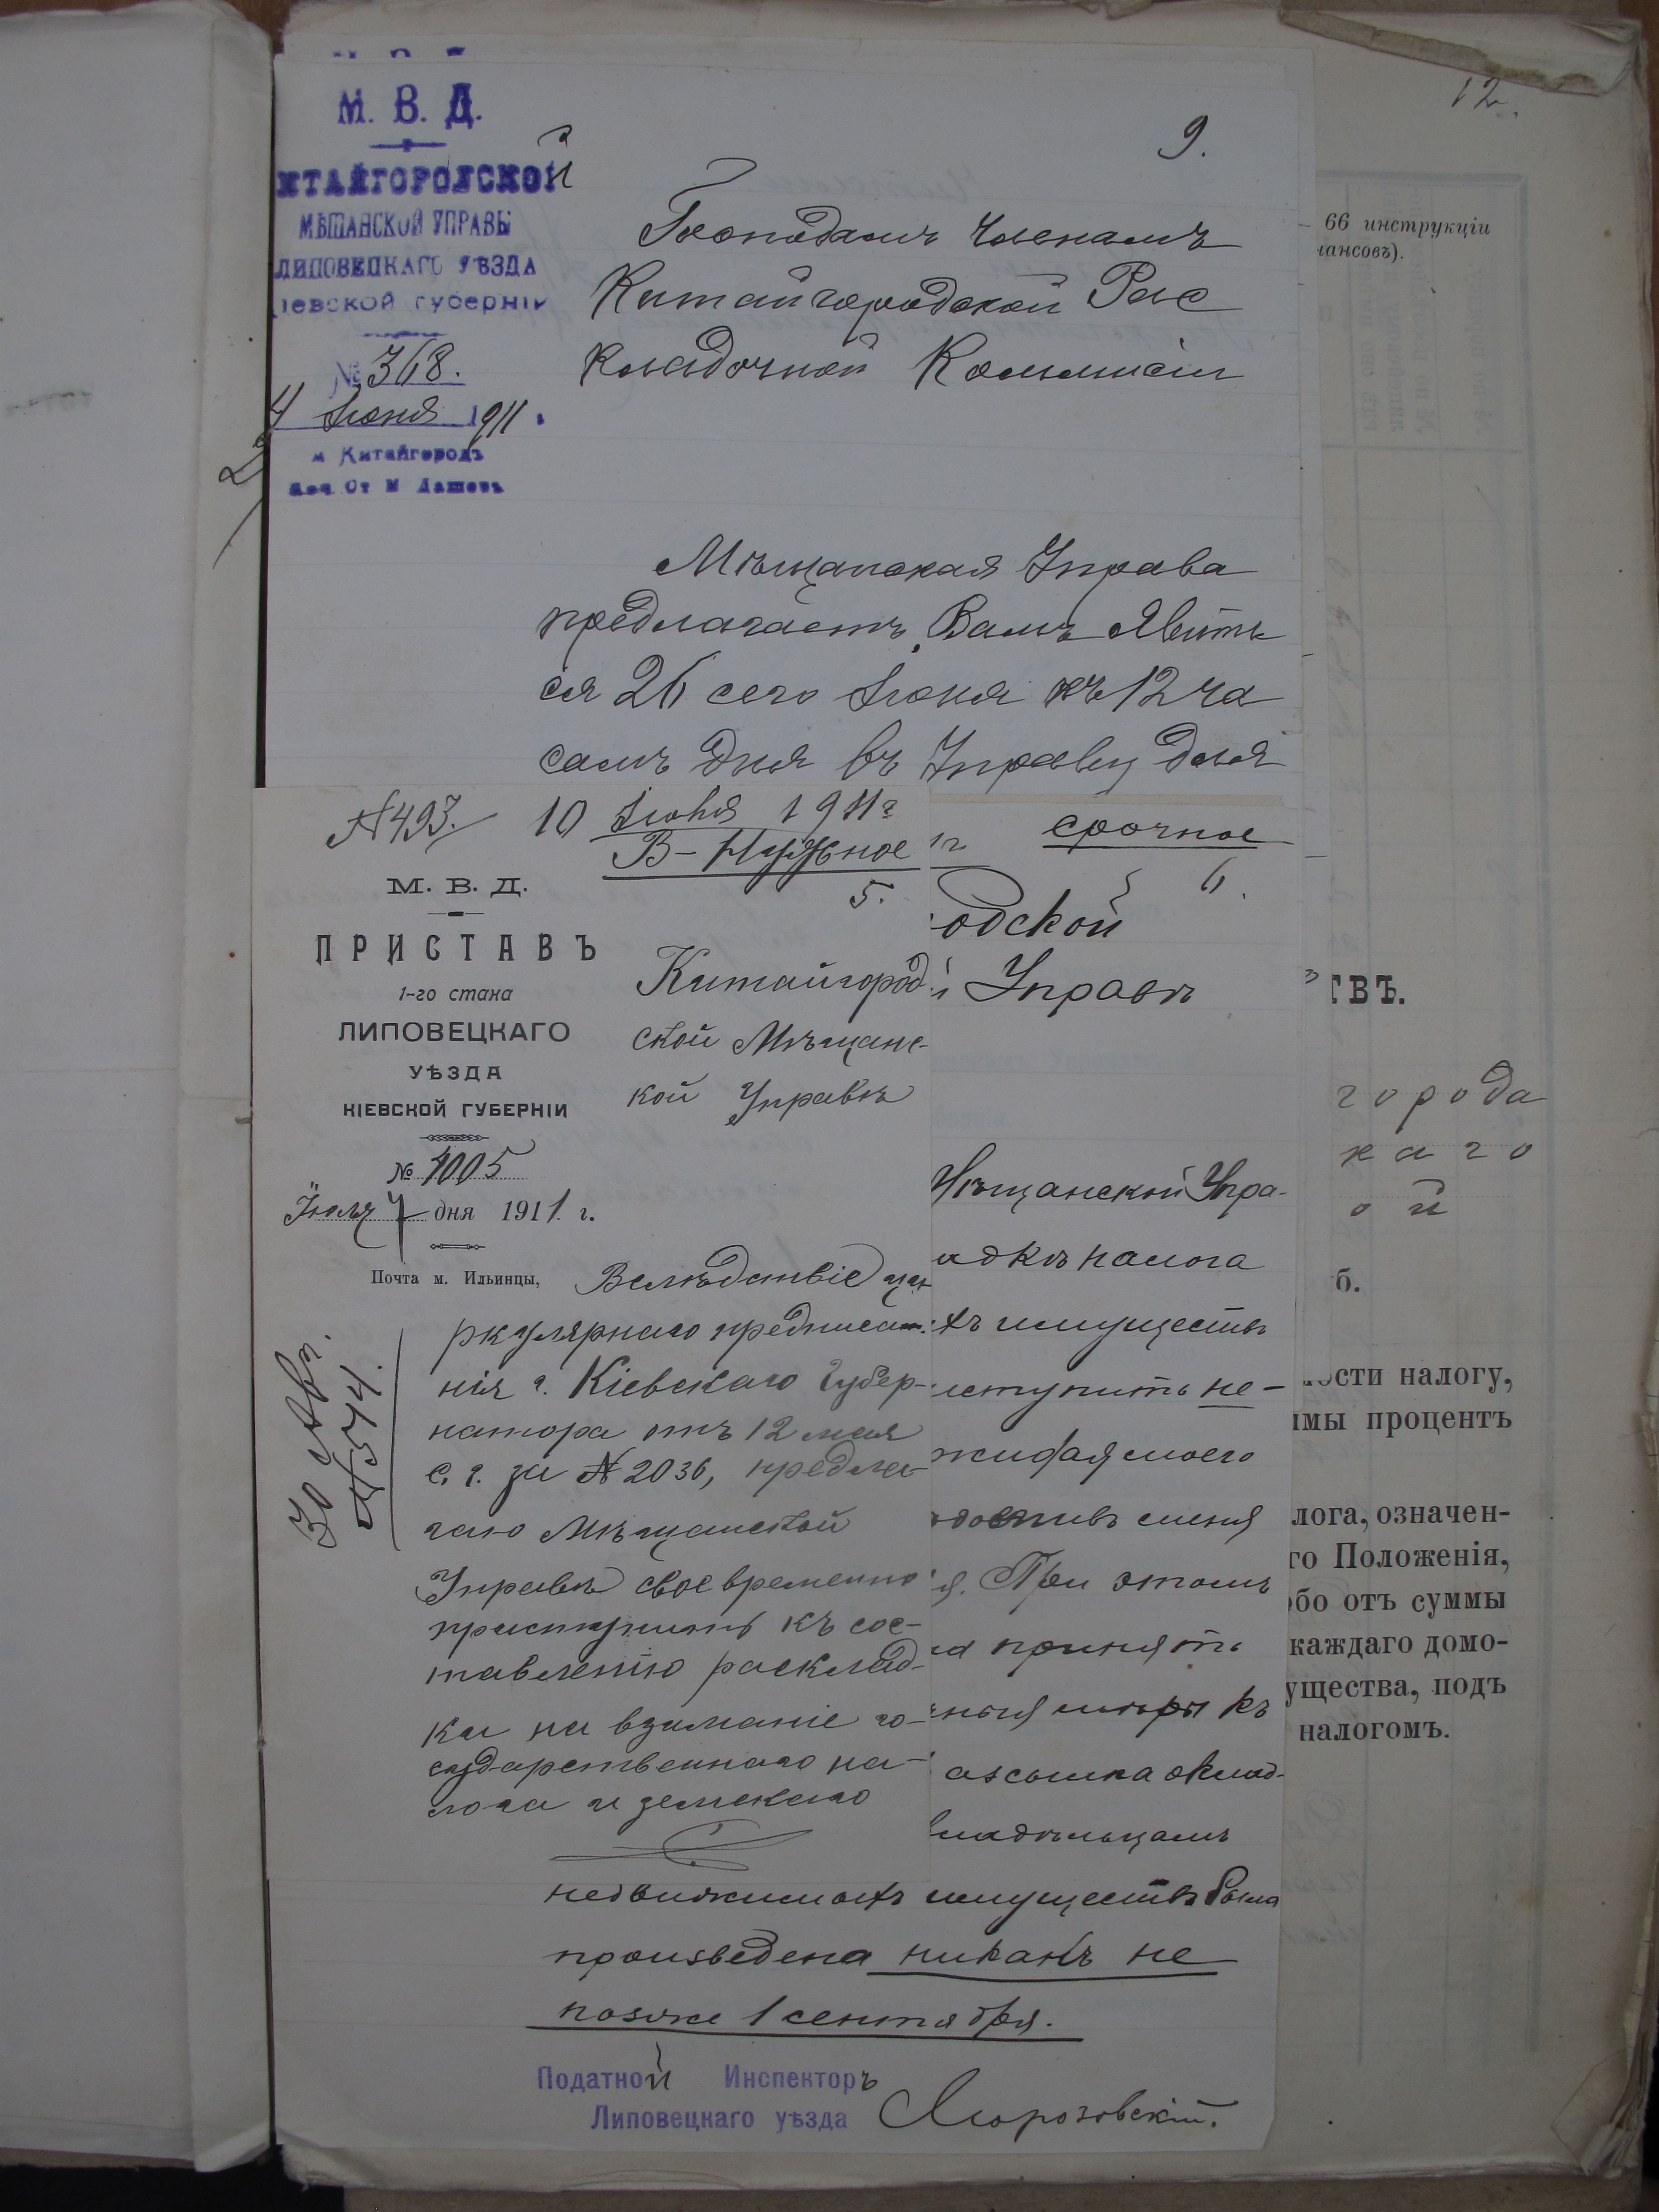 12.
66 инструкціи
нансовъ).
М. В. Д.
КИТАЙГОРОДСКОЙ
МѢЩАНСКОЙ УПРАВЫ
ЛИПОВЕЦКАГО УѢЗДА
Кіевской губерніи
№ 368.
24 Іюня 1911.
м Китайгородъ
9.
Господамъ Членамъ
Китайгородской Рас
кладочной Коммисіи
Мѣщанская Управа
предлагаетъ Вамъ явить
ся 26 сего Іюня къ 12 ча
самъ дня въ Управу для
№ 493. 10 Іюля 1911 г
В-Нужное
5.
М. В. Д.
ПРИСТАВЪ
1-го стана
ЛИПОВЕЦКАГО
УѢЗДА
КІЕВСКОЙ ГУБЕРНІИ
№ 4005
Іюля 7 дня 1911 г.
Почта м. Ильинцы,
Китайгород
ской Мѣщанс-
кой Управѣ
Вслѣдствіе ци
ркулярнаго предписа
нія г. Кіевскаго Губер-
натора отъ 12 мая
с. г. за № 2036, предла-
гаю Мѣщанской
Управѣ своевременно
приступить къ сос-
тавленію расклад-
ки на взиманіе го-
сударственнаго на-
лога и земскаго
30 Авг.
№ 574.
срочное
6.
одской
й Управѣ
Мѣщанской Упра-
адкѣ налога
хъ имуществъ
иступить не-
ожидая моего
я. При этомъ
а принять
ныя мѣры къ
азсылка оклад-
владѣльцамъ
недвижимыхъ имуществъ была
произведена никакъ не
позже 1 сентября.
Податной Инспекторъ
Липовецкаго уѣзда
ТВЪ.
города
каго
ой
б.
ости налогу,
ммы процентъ
лога, означен-
го Положенія,
обо отъ суммы
каждаго домо-
ущества, подъ
налогомъ.